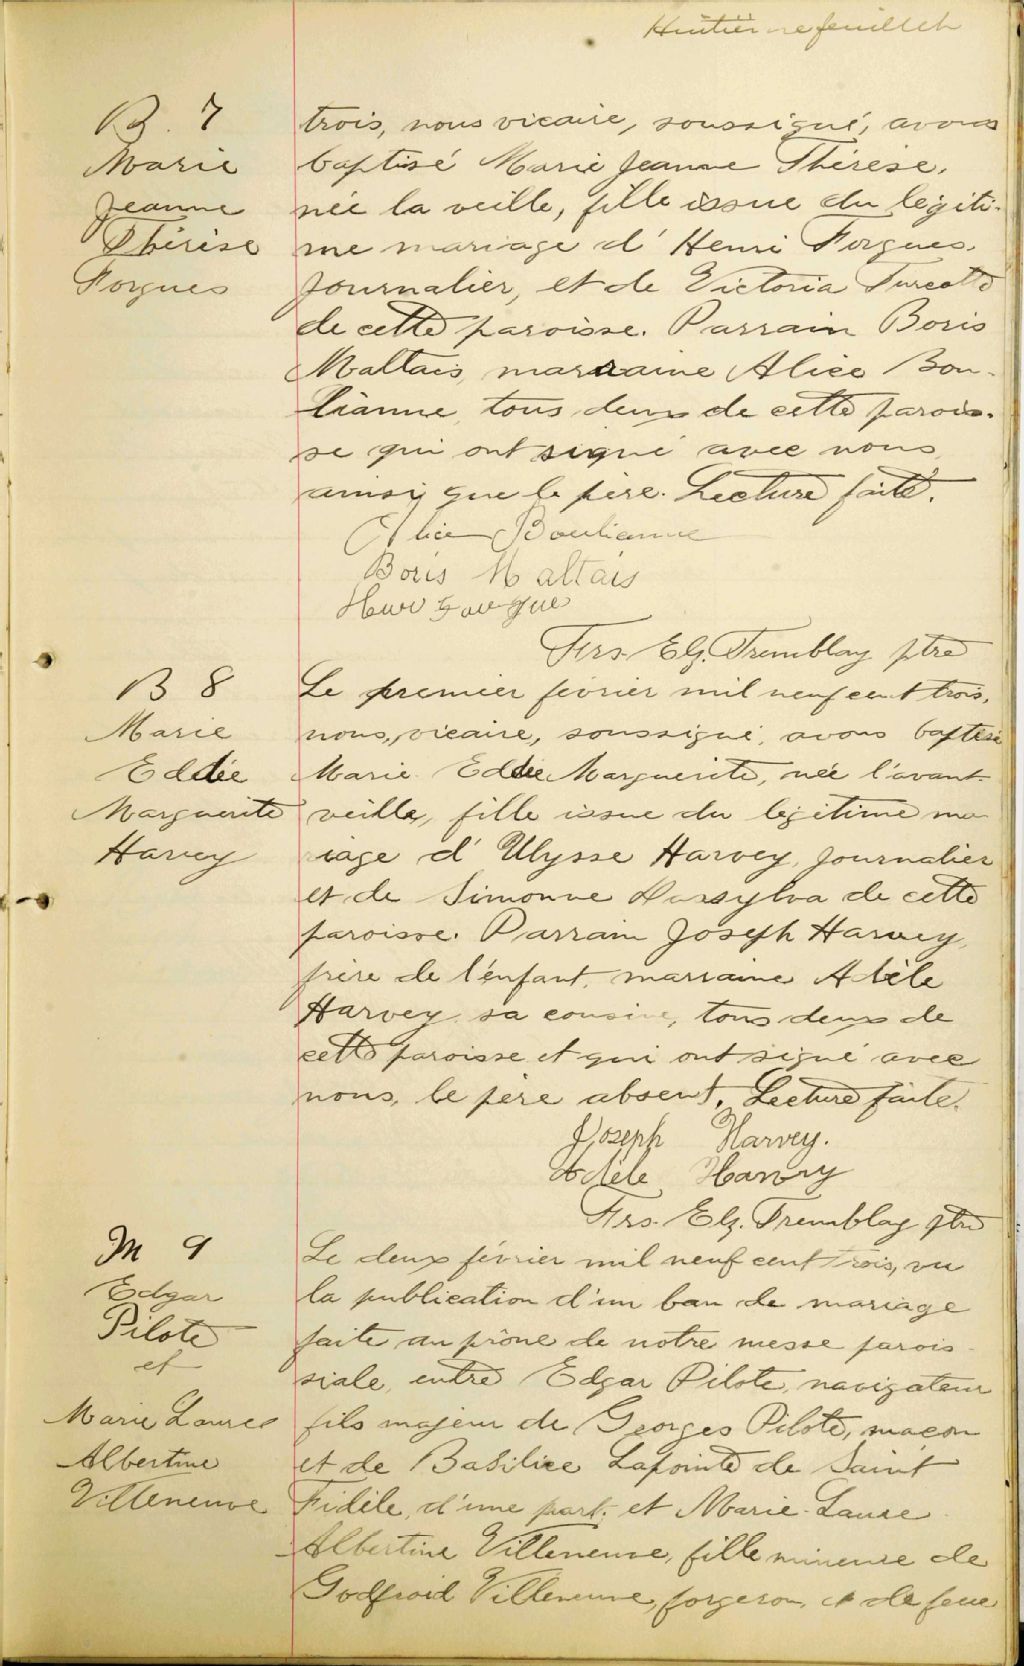 Huitième feuillet
B. 7
Marie
Jeanne
Thérèse
Forgues
trois, nous vicaire, soussigné, avons
baptisé Marie Jeanne Thérèse,
née la veille, fille issue du légiti-
me mariage d'Henri Forgues,
journalier, et de Victoria Turcotte
de cette paroisse. Parrain Boris
Maltais, marraine Alice Bou-
lianne, tous deux de cette parois-
se qui ont signé avec nous
ainsi que le père. Lecture faite.
Alice Boulianne
Boris Maltais
Henri Forgue
Frs. Elz. Tremblay ptre
B 8
Marie
Eddée
Marguerite
Harvey
Le premier février mil neuf cent trois,
nous, vicaire, soussigné, avons baptisé
Marie Eddée Marguerite, née l'avant-
veille, fille issue du légitime ma
riage d'Ulysse Harvey, journalier
et de Simonne Dassylva de cette
paroisse. Parrain Joseph Harvey,
frère de l'enfant, marraine Adèle
Harvey sa cousine, tous deux de
cette paroisse et qui ont signé avec
nous, le père absent. Lecture faite.
Joseph Harvey.
Adèle Harvey
Frs. Elz. Tremblay ptre
M 9
Edgar
Pilote
et
Marie Laure
Albertine
Villeneuve
Le deux février mil neuf cent trois, vu
la publication d'un ban de mariage
faite au prône de notre messe parois-
siale, entre Edgar Pilote, navigateur
fils majeur de Georges Pilote, maçon
et de Basilice Lapointe de Saint
Fidèle, d'une part, et Marie-Laure
Albertine Villeneuve, fille mineure de
Godfroid Villeneuve, forgeron, et de feue